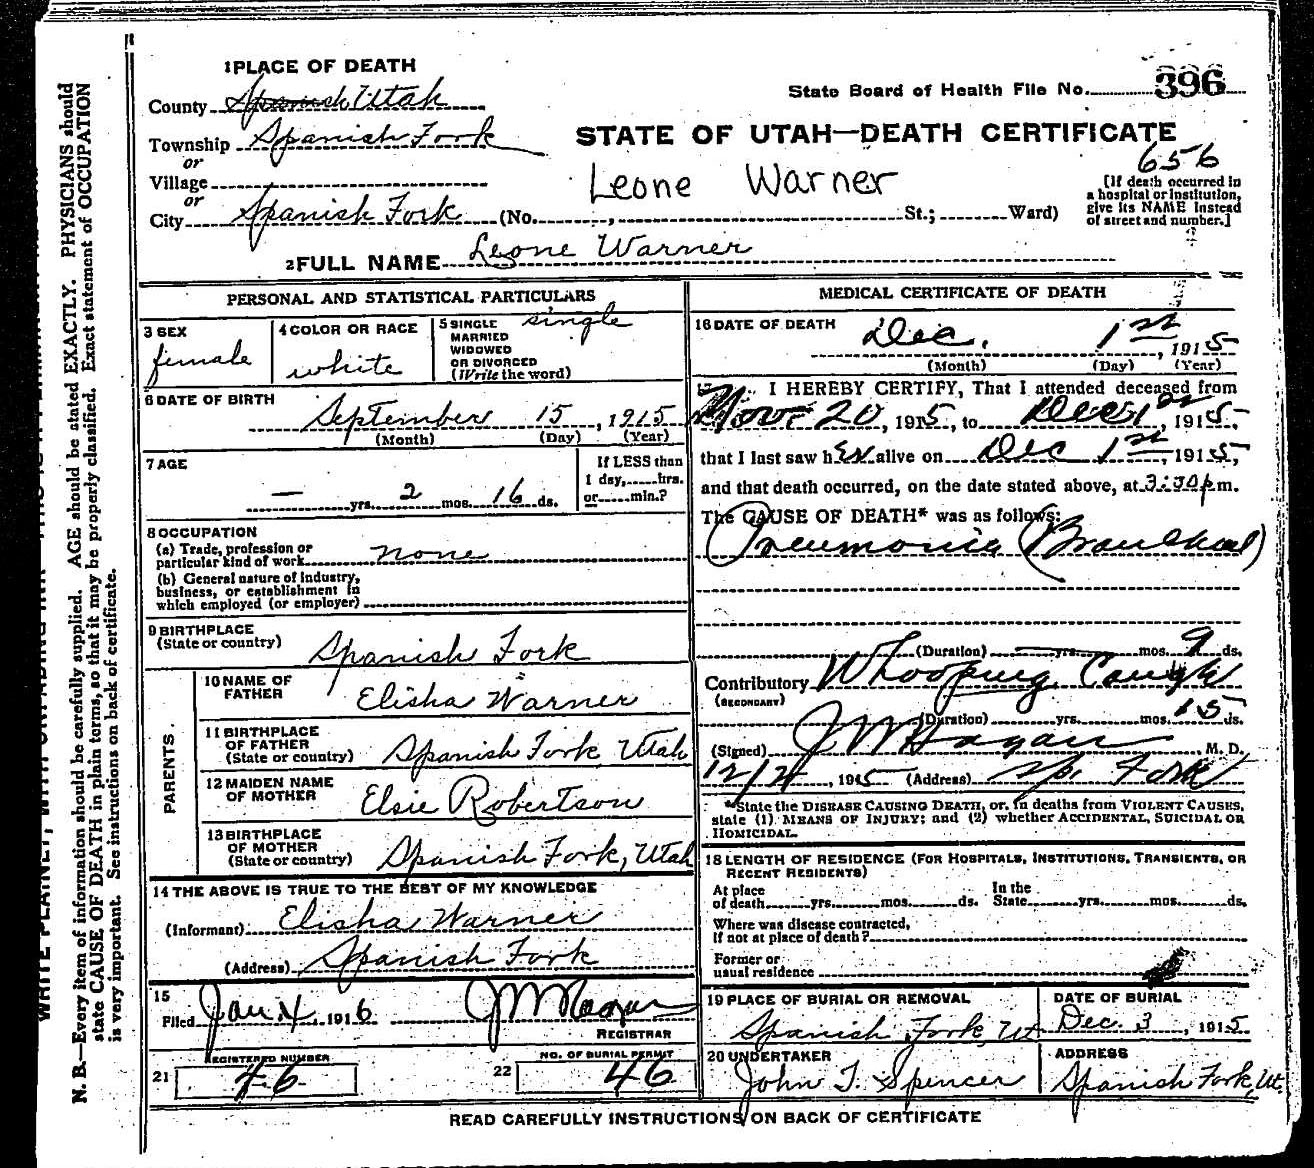 1 PLACE OF DEATH
County Spanish Utah
State Board of Health File No. 396
Township Spanish Fork
STATE OF UTAH—DEATH CERTIFICATE
or
656
Village
Leone Warner
or
City Spanish Fork (No. , St.; Ward)
[If death occurred in a hospital or institution, give its NAME instead of street and number.]
2 FULL NAME Leone Warner
PERSONAL AND STATISTICAL PARTICULARS
3 SEX
female
4 COLOR OR RACE
white
5 SINGLE
MARRIED
WIDOWED
OR DIVORCED
(Write the word)
single
6 DATE OF BIRTH
September 15, 1915
(Month) (Day) (Year)
7 AGE
— yrs. 2 mos. 16 ds.
If LESS than
1 day, hrs.
or min.?
8 OCCUPATION
(a) Trade, profession or
particular kind of work none
(b) General nature of industry,
business, or establishment in
which employed (or employer)
9 BIRTHPLACE
(State or country) Spanish Fork
PARENTS.
10 NAME OF
FATHER Elisha Warner
11 BIRTHPLACE
OF FATHER
(State or country) Spanish Fork, Utah
12 MAIDEN NAME
OF MOTHER Elsie Robertson
13 BIRTHPLACE
OF MOTHER
(State or country) Spanish Fork, Utah
14 THE ABOVE IS TRUE TO THE BEST OF MY KNOWLEDGE
(Informant) Elisha Warner
(Address) Spanish Fork
15
Filed Jan 4, 1916
REGISTRAR
REGISTERED NUMBER
21 46
NO. OF BURIAL PERMIT
22 46
MEDICAL CERTIFICATE OF DEATH
16 DATE OF DEATH
Dec. 1st, 1915
(Month) (Day) (Year)
17 I HEREBY CERTIFY, That I attended deceased from
Nov 20, 1915, to Dec 1st 1915,
that I last saw her alive on Dec 1st, 1915,
and that death occurred, on the date stated above, at 3:30 p m.
The CAUSE OF DEATH* was as follows:
Pneumonia (Bronchial)
(Duration) — yrs. mos. 9 ds.
Contributory Whooping Cough
(SECONDARY)
(Duration) yrs. mos. 15 ds.
(Signed) J M Hagan M. D.
12/4, 1915 (Address) Sp. Fork
*State the DISEASE CAUSING DEATH, or, in deaths from VIOLENT CAUSES,
state (1) MEANS OF INJURY; and (2) whether ACCIDENTAL, SUICIDAL OR
HOMICIDAL.
18 LENGTH OF RESIDENCE (FOR HOSPITALS, INSTITUTIONS, TRANSIENTS, OR
RECENT RESIDENTS)
At place
of death yrs. mos. ds.
In the
State yrs. mos. ds.
Where was disease contracted,
if not at place of death?
Former or
usual residence
19 PLACE OF BURIAL OR REMOVAL
Spanish Fork, Ut
DATE OF BURIAL
Dec. 3, 1915
20 UNDERTAKER
John T. Spencer
ADDRESS
Spanish Fork, Ut.
READ CAREFULLY INSTRUCTIONS ON BACK OF CERTIFICATE
N. B.—Every item of information should be carefully supplied. AGE should be stated EXACTLY. PHYSICIANS should
state CAUSE OF DEATH in plain terms, so that it may be properly classified. Exact statement of OCCUPATION
is very important. See instructions on back of certificate.